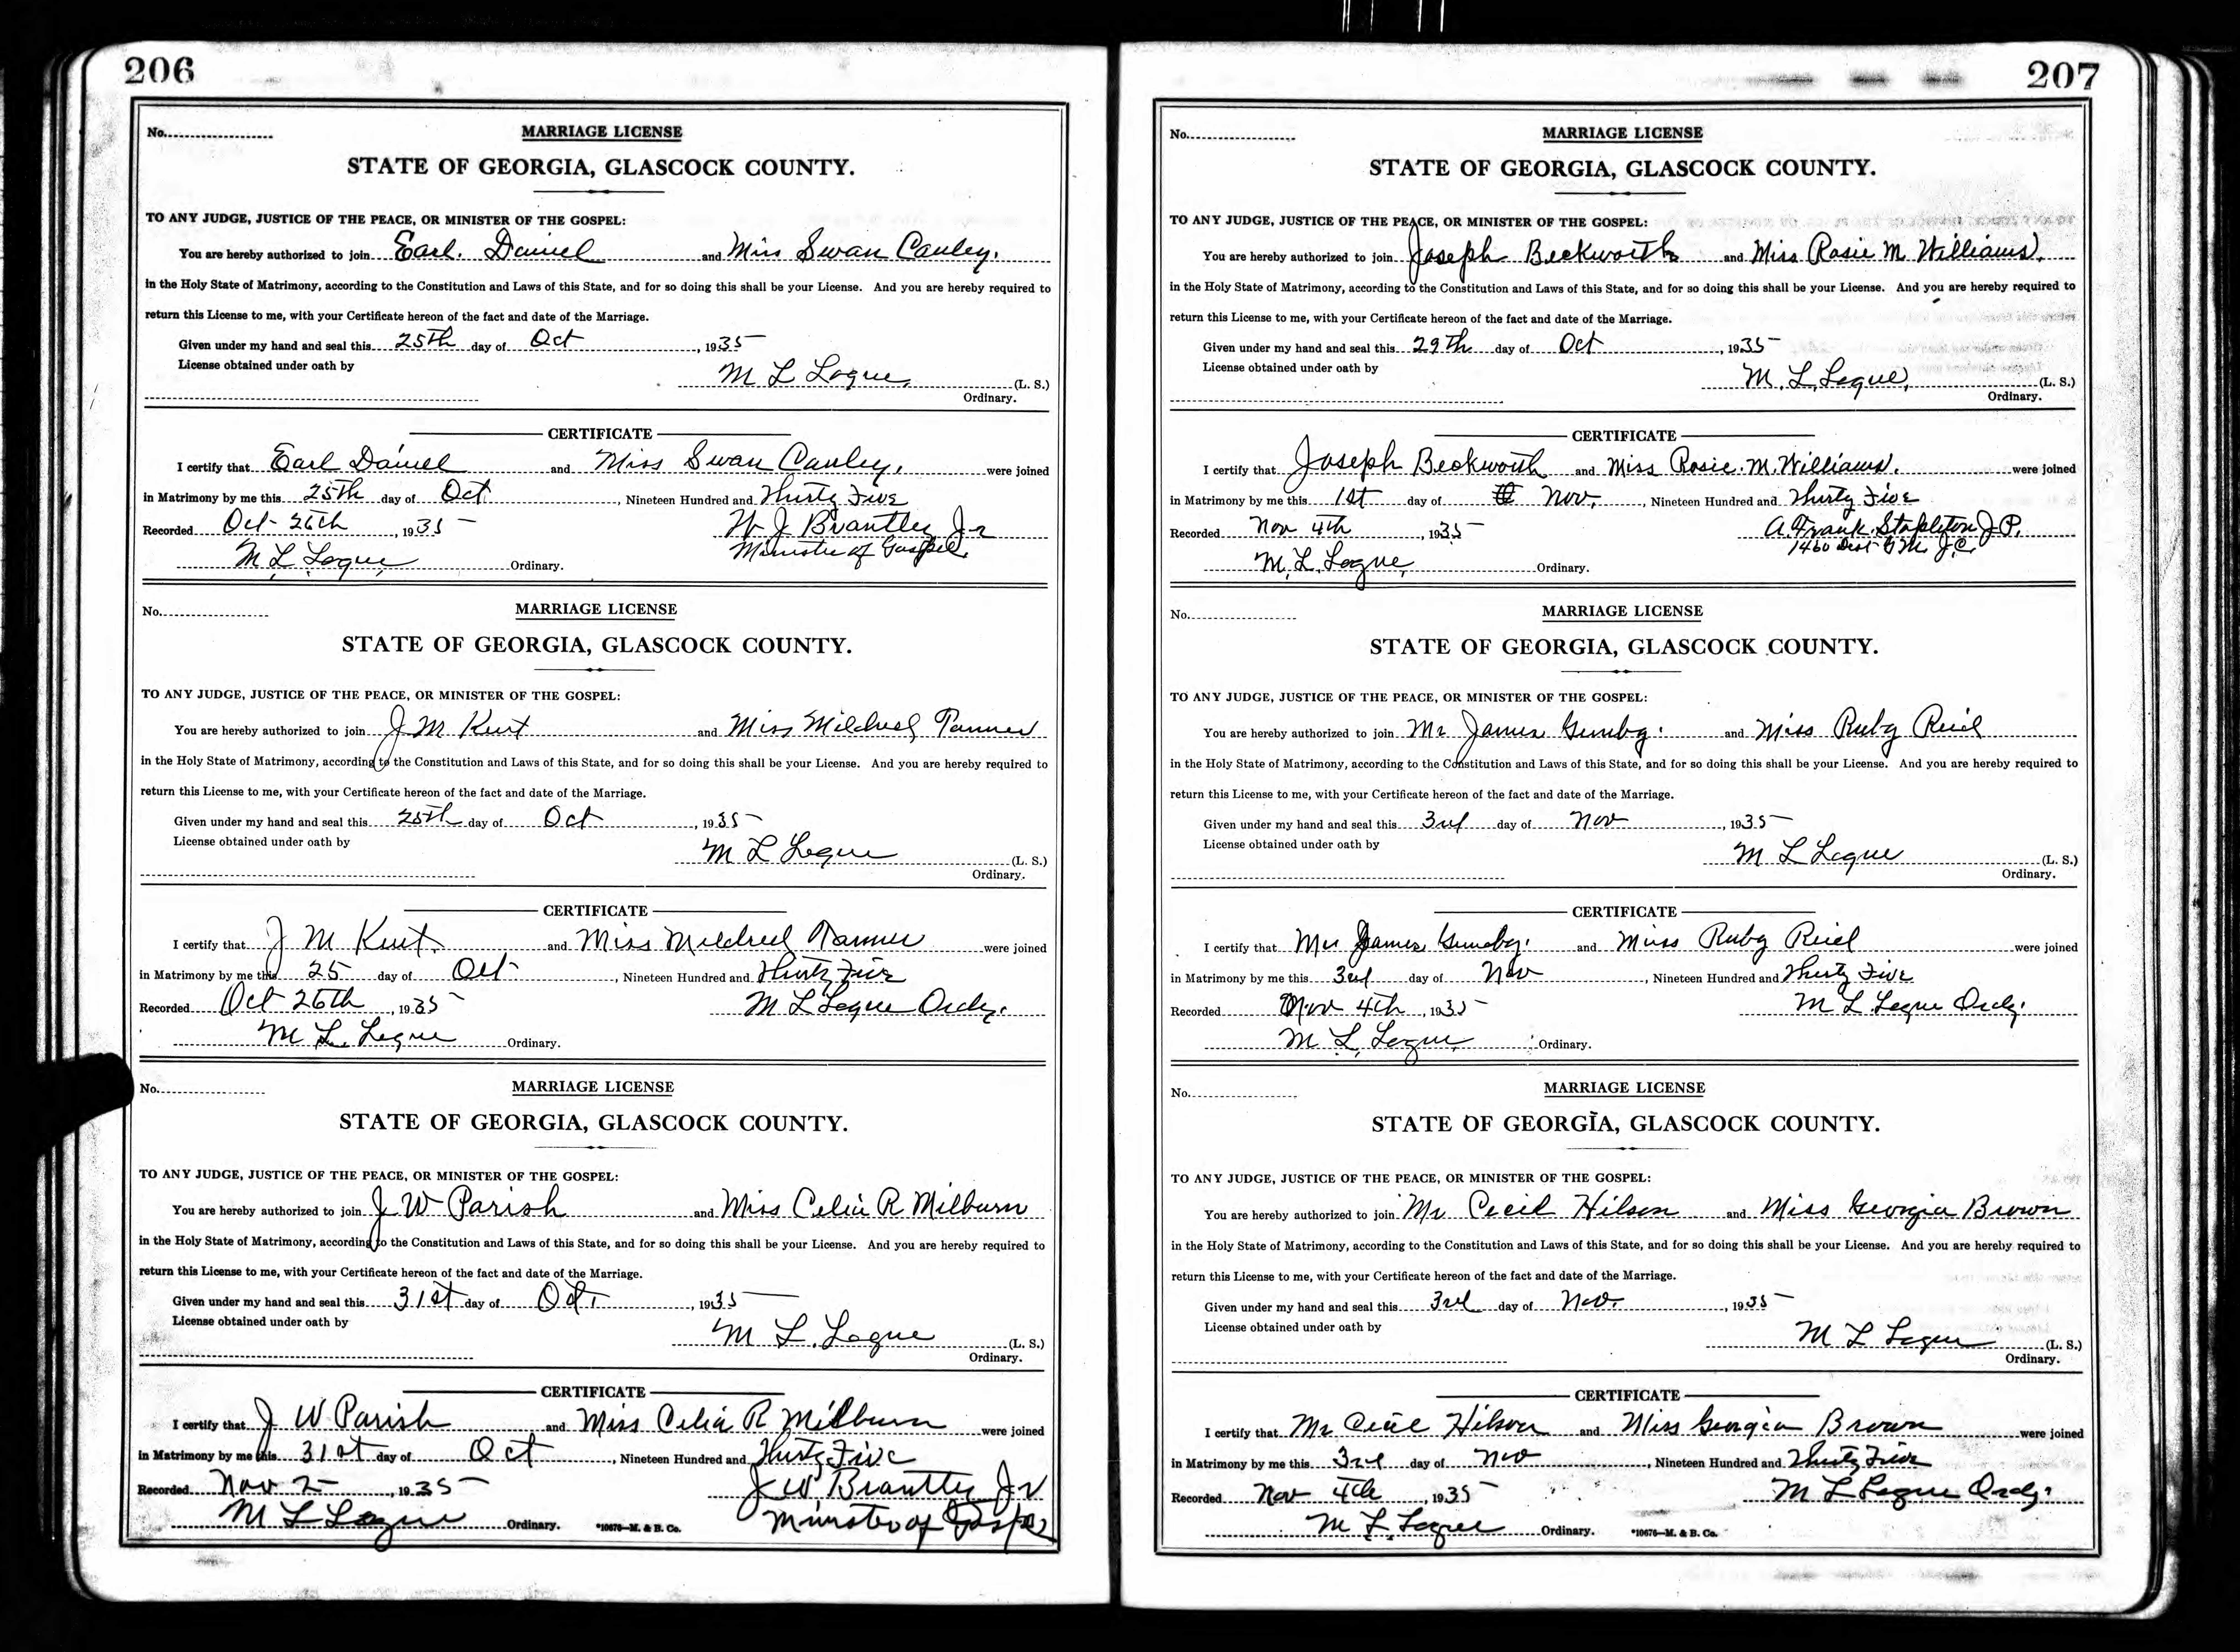 206
No.
MARRIAGE LICENSE
STATE OF GEORGIA, GLASCOCK COUNTY.
TO ANY JUDGE, JUSTICE OF THE PEACE, OR MINISTER OF THE GOSPEL:
You are hereby authorized to join Earl. Daniel and Miss Swan Cauley.
in the Holy State of Matrimony, according to the Constitution and Laws of this State, and for so doing this shall be your License. And you are hereby required to
return this License to me, with your Certificate hereon of the fact and date of the Marriage.
Given under my hand and seal this 25th day of Oct, 1935
License obtained under oath by
M L Logue, (L. S.)
Ordinary.
CERTIFICATE
I certify that Earl Daniel and Miss Swan Cauley. were joined
in Matrimony by me this 25th day of Oct, Nineteen Hundred and Thirty Five
Recorded Oct 26th, 1935 W J Brantley Jr
Minister of Gospel.
M. L. Logue, Ordinary.
No.
MARRIAGE LICENSE
STATE OF GEORGIA, GLASCOCK COUNTY.
TO ANY JUDGE, JUSTICE OF THE PEACE, OR MINISTER OF THE GOSPEL:
You are hereby authorized to join J M Kent and Miss Mildred Tanner
in the Holy State of Matrimony, according to the Constitution and Laws of this State, and for so doing this shall be your License. And you are hereby required to
return this License to me, with your Certificate hereon of the fact and date of the Marriage.
Given under my hand and seal this 25th day of Oct, 1935
License obtained under oath by
M L Logue (L. S.)
Ordinary.
CERTIFICATE
I certify that J M Kent and Miss Mildred Tanner were joined
in Matrimony by me this 25 day of Oct, Nineteen Hundred and Thirty Five
Recorded Oct 26th, 1935 M L Logue Ordy.
M. L. Logue Ordinary.
No.
MARRIAGE LICENSE
STATE OF GEORGIA, GLASCOCK COUNTY.
TO ANY JUDGE, JUSTICE OF THE PEACE, OR MINISTER OF THE GOSPEL:
You are hereby authorized to join J W Parish and Miss Celia R Milburn
in the Holy State of Matrimony, according to the Constitution and Laws of this State, and for so doing this shall be your License. And you are hereby required to
return this License to me, with your Certificate hereon of the fact and date of the Marriage.
Given under my hand and seal this 31st day of Oct., 1935
License obtained under oath by
M L. Logue (L. S.)
Ordinary.
CERTIFICATE
I certify that J W Parish and Miss Celia R Milburn were joined
in Matrimony by me this 31st day of Oct, Nineteen Hundred and Thirty Five
Recorded Nov 2, 1935 J W Brantley Jr
M L Logue Ordinary. *10676—M. & B. Co. Minister of Gospel
207
No.
MARRIAGE LICENSE
STATE OF GEORGIA, GLASCOCK COUNTY.
TO ANY JUDGE, JUSTICE OF THE PEACE, OR MINISTER OF THE GOSPEL:
You are hereby authorized to join Joseph Beckworth and Miss Rosie M. Williams.
in the Holy State of Matrimony, according to the Constitution and Laws of this State, and for so doing this shall be your License. And you are hereby required to
return this License to me, with your Certificate hereon of the fact and date of the Marriage.
Given under my hand and seal this 29th day of Oct, 1935
License obtained under oath by
M. L. Logue, (L. S.)
Ordinary.
CERTIFICATE
I certify that Joseph Beckworth and Miss Rosie. M. Williams. were joined
in Matrimony by me this 1st day of Nov., Nineteen Hundred and Thirty Five
Recorded Nov 4th, 1935 A. Frank Stapleton J P.
1460 Dist G M. J.C.
M. L. Logue, Ordinary.
No.
MARRIAGE LICENSE
STATE OF GEORGIA, GLASCOCK COUNTY.
TO ANY JUDGE, JUSTICE OF THE PEACE, OR MINISTER OF THE GOSPEL:
You are hereby authorized to join Mr James and Miss Ruby
in the Holy State of Matrimony, according to the Constitution and Laws of this State, and for so doing this shall be your License. And you are hereby required to
return this License to me, with your Certificate hereon of the fact and date of the Marriage.
Given under my hand and seal this 3rd day of Nov, 1935
License obtained under oath by
M L Logue (L. S.)
Ordinary.
CERTIFICATE
I certify that James and Miss Ruby were joined
in Matrimony by me this 3rd day of Nov, Nineteen Hundred and Thirty Five
Recorded Nov 4th, 1935 M L Logue Ordy.
M. L. Logue Ordinary.
No.
MARRIAGE LICENSE
STATE OF GEORGIA, GLASCOCK COUNTY.
TO ANY JUDGE, JUSTICE OF THE PEACE, OR MINISTER OF THE GOSPEL:
You are hereby authorized to join Mr Cecil Hilson and Miss Georgia Brown
in the Holy State of Matrimony, according to the Constitution and Laws of this State, and for so doing this shall be your License. And you are hereby required to
return this License to me, with your Certificate hereon of the fact and date of the Marriage.
Given under my hand and seal this 3rd day of Nov., 1935
License obtained under oath by
M L Logue (L. S.)
Ordinary.
CERTIFICATE
I certify that Mr Cecil Hilson and Miss Georgia Brown were joined
in Matrimony by me this 3rd day of Nov, Nineteen Hundred and Thirty Five
Recorded Nov 4th, 1935 M L Logue Ordy.
M L. Logue Ordinary. *10676—M. & B. Co.